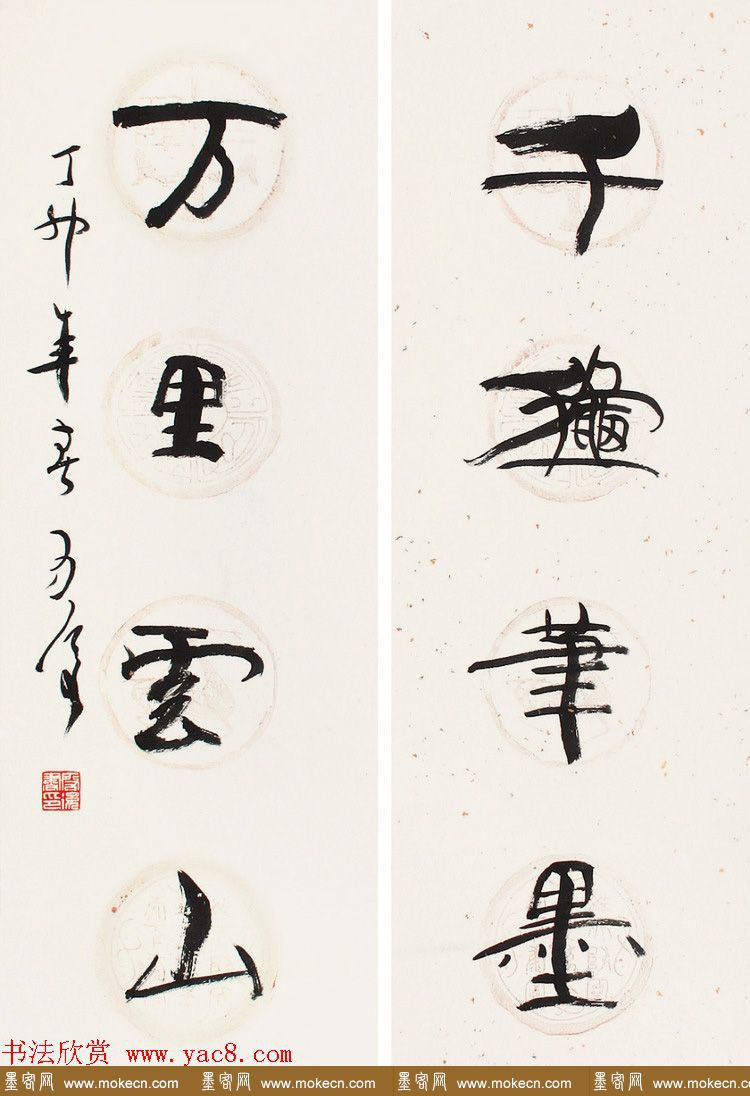 千龝筆墨
万里雲山
丁卯年春
书法欣赏 www.yac8.com
墨客网 www.mokecn.com 墨客网 www.mokecn.com 墨客网 www.mokecn.com 墨客网 www.mokecn.com